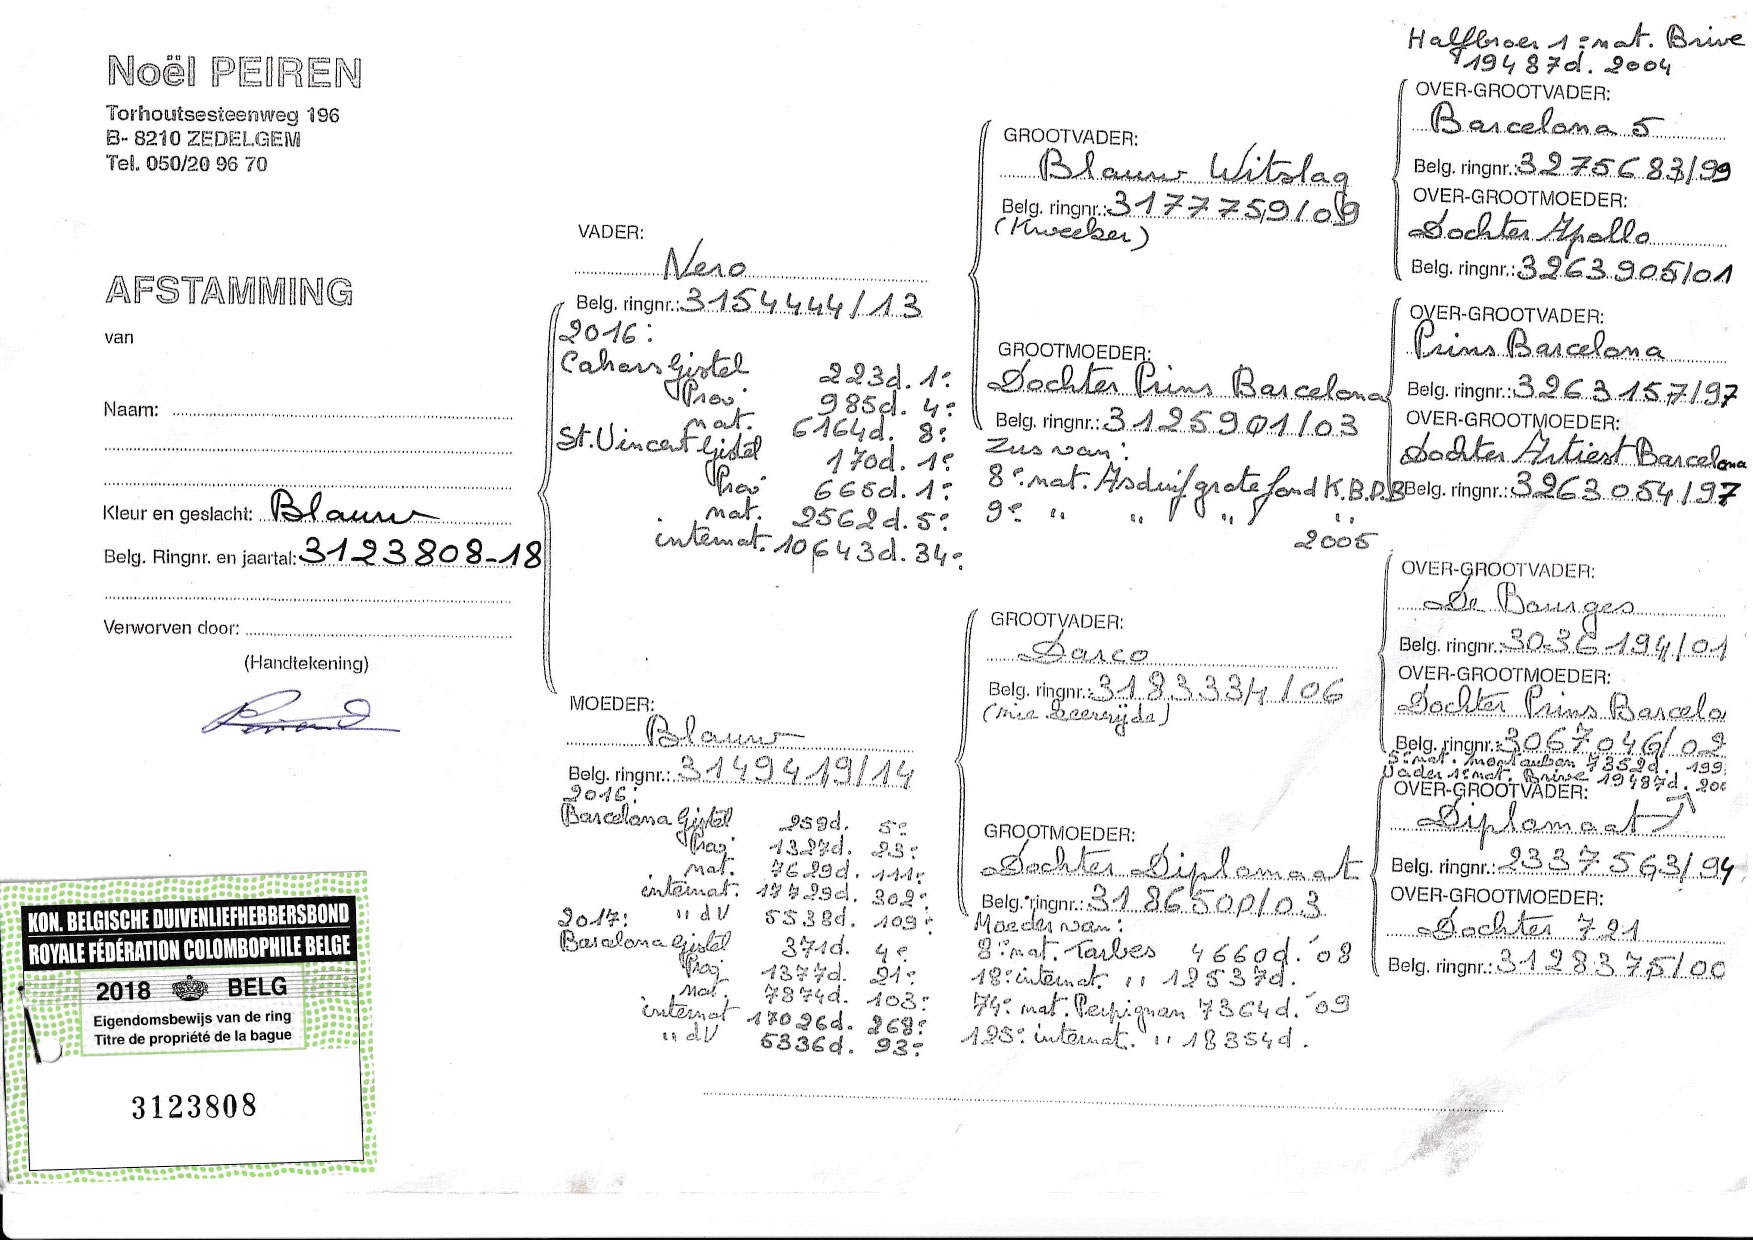 Noël PEIREN
Torhoutsesteenweg 196
B- 8210 ZEDELGEM
Tel. 050/20 96 70
AFSTAMMING
van
Naam:
Kleur en geslacht: Blauw
Belg. Ringnr. en jaartal: 3123808-18
Verworven door:
(Handtekening)
KON. BELGISCHE DUIVENLIEFHEBBERSBOND
ROYALE FÉDÉRATION COLOMBOPHILE BELGE
2018 BELG
Eigendomsbewijs van de ring
Titre de propriété de la bague
3123808
VADER:
Nero
Belg. ringnr.: 3154444/13
2016:
Cahors Gistel 223d. 1e
Prov. 985d. 4e
nat. 6164d. 8e
St. Vincent Gistel 170d. 1e
Prov 665d. 1e
nat. 2562d. 5e
internat. 10643d. 34e
MOEDER:
Blauw
Belg. ringnr.: 3149419/14
2016:
Barcelona Gistel 259d. 5e
Prov 1327d. 23e
nat. 7629d. 111e
internat. 17729d. 302e
" dV 5538d. 109e
2017:
Barcelona Gistel 371d. 4e
Prov 1377d. 21e
nat. 7874d. 103e
internat 17026d. 268e
" dV 6336d. 93e
GROOTVADER:
Blauw Witslag
Belg. ringnr.: 3177759/09
(Kweeker)
GROOTMOEDER:
Dochter Prins Barcelona
Belg. ringnr.: 3125901/03
Zus van:
8e nat. Asduif grote fond K.B.D.B
9e " " " "
2005
GROOTVADER:
Darco
Belg. ringnr.: 3183334/06
GROOTMOEDER:
Dochter Diplomaat
Belg. ringnr.: 3186500/03
Moeder van:
8e nat. Tarbes 4660d. '08
18e internat. " 12537d.
74e nat. Perpignan 7364d. '09
125e internat. " 18354d.
Halfbroer 1e nat. Brive
19487d. 2004
OVER-GROOTVADER:
Barcelona 5
Belg. ringnr.: 3275683/99
OVER-GROOTMOEDER:
Dochter Apollo
Belg. ringnr.: 3263905/01
OVER-GROOTVADER:
Prins Barcelona
Belg. ringnr.: 3263157/97
OVER-GROOTMOEDER:
Dochter Artiest Barcelona
Belg. ringnr.: 3263054/97
OVER-GROOTVADER:
De Bourges
Belg. ringnr.: 3036194/01
OVER-GROOTMOEDER:
Dochter Prins Barcelo
Belg. ringnr.: 3067046/02
5e nat. Montauban 7352d. 199
Vader 1e nat. Brive 19487d. 200
OVER-GROOTVADER:
Diplomaat
Belg. ringnr.: 2337563/94
OVER-GROOTMOEDER:
Dochter 721
Belg. ringnr.: 3128375/00